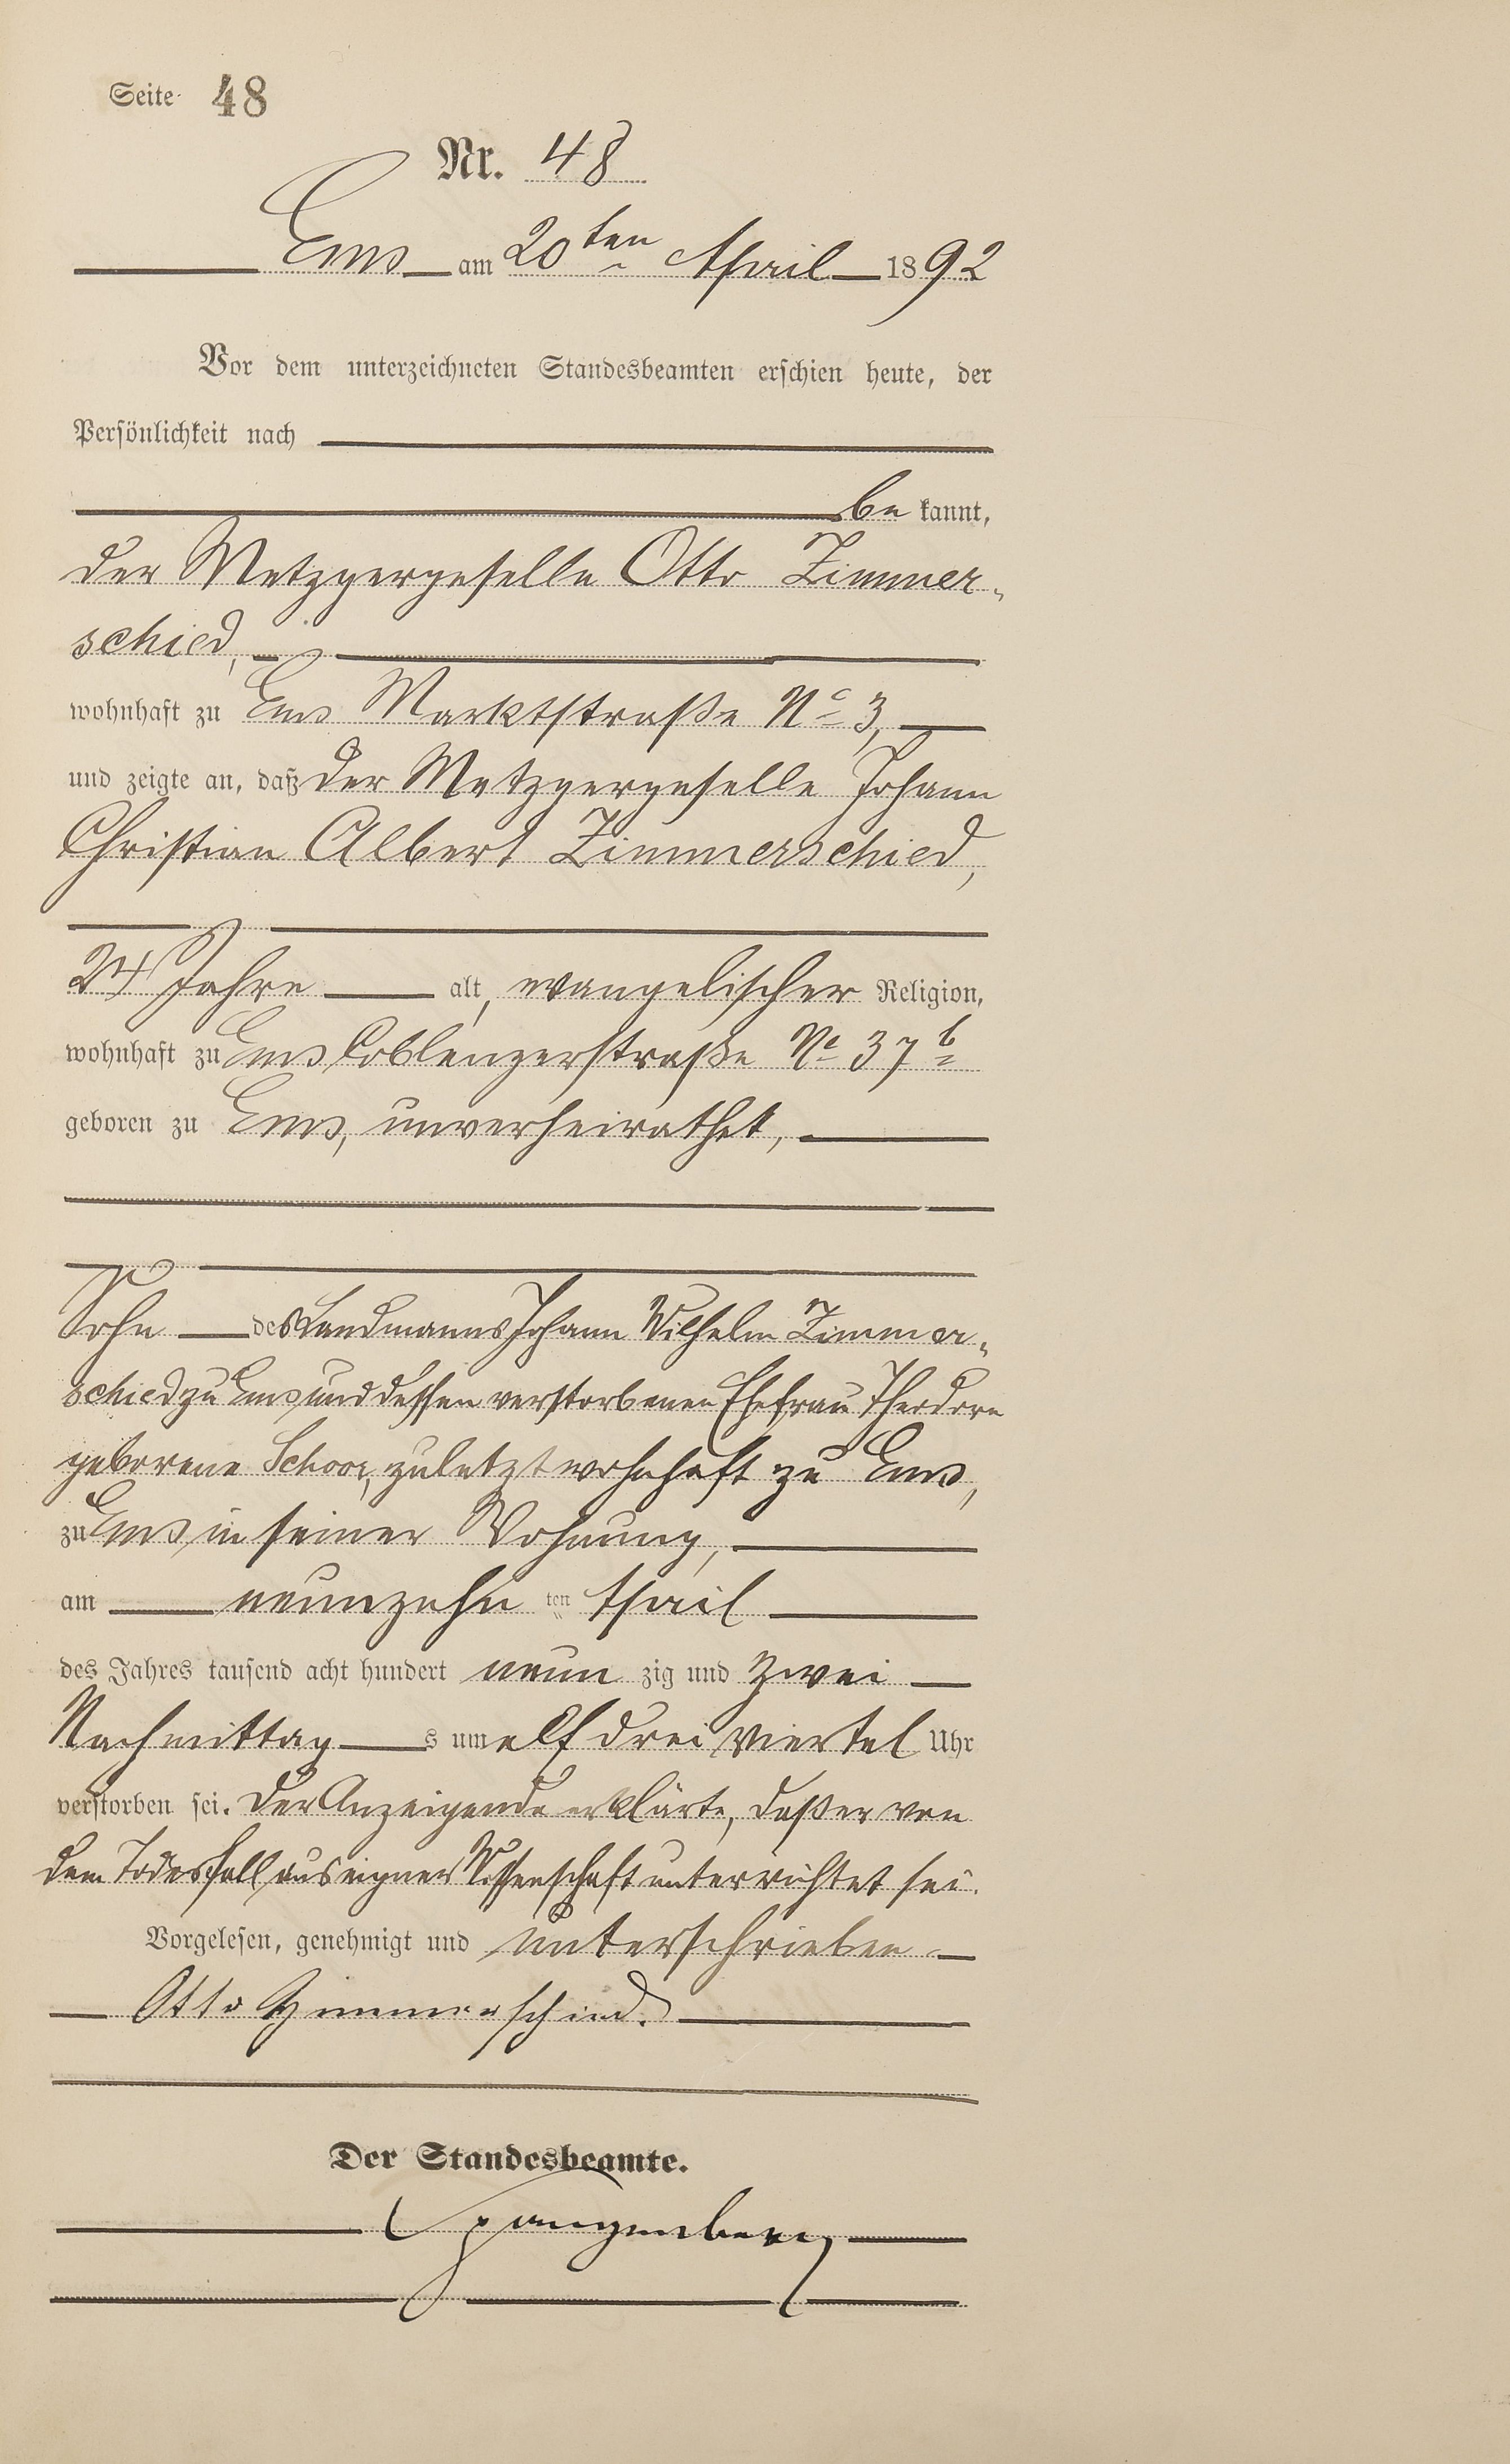 Seite 48
Nr. 48
Ems am 20ten April 1892
Vor dem unterzeichneten Standesbeamten erschien heute, der
Persönlichkeit nach
be kannt,
der Metzgergeselle Otto Zimmer-
schied,
wohnhaft zu Ems Marktstraße No 3,
und zeigte an, daß der Metzgergeselle Johann
Christian Albert Zimmerschied,
24 Jahre alt, evangelischer Religion,
wohnhaft zu Ems Coblenzerstraße No 37b
geboren zu Ems, unverheirathet,
Sohn des Landmanns Johann Wilhelm Zimmer-
schied zu Ems und dessen verstorbenen Ehefrau Theodore
geborene Schoor, zuletzt wohnhaft zu Ems,
zu Ems in seiner Wohnung,
am neunzehn ten April
des Jahres tausend acht hundert neun zig und zwei
Nachmittag s um elf drei viertel Uhr
verstorben sei. Der Anzeigende erklärte, daß er von
dem Todesfall aus eigner Wissenschaft unterrichtet sei.
Vorgelesen, genehmigt und unterschrieben
Otto Zimmerschied.
Der Standesbeamte.
Spangenberg